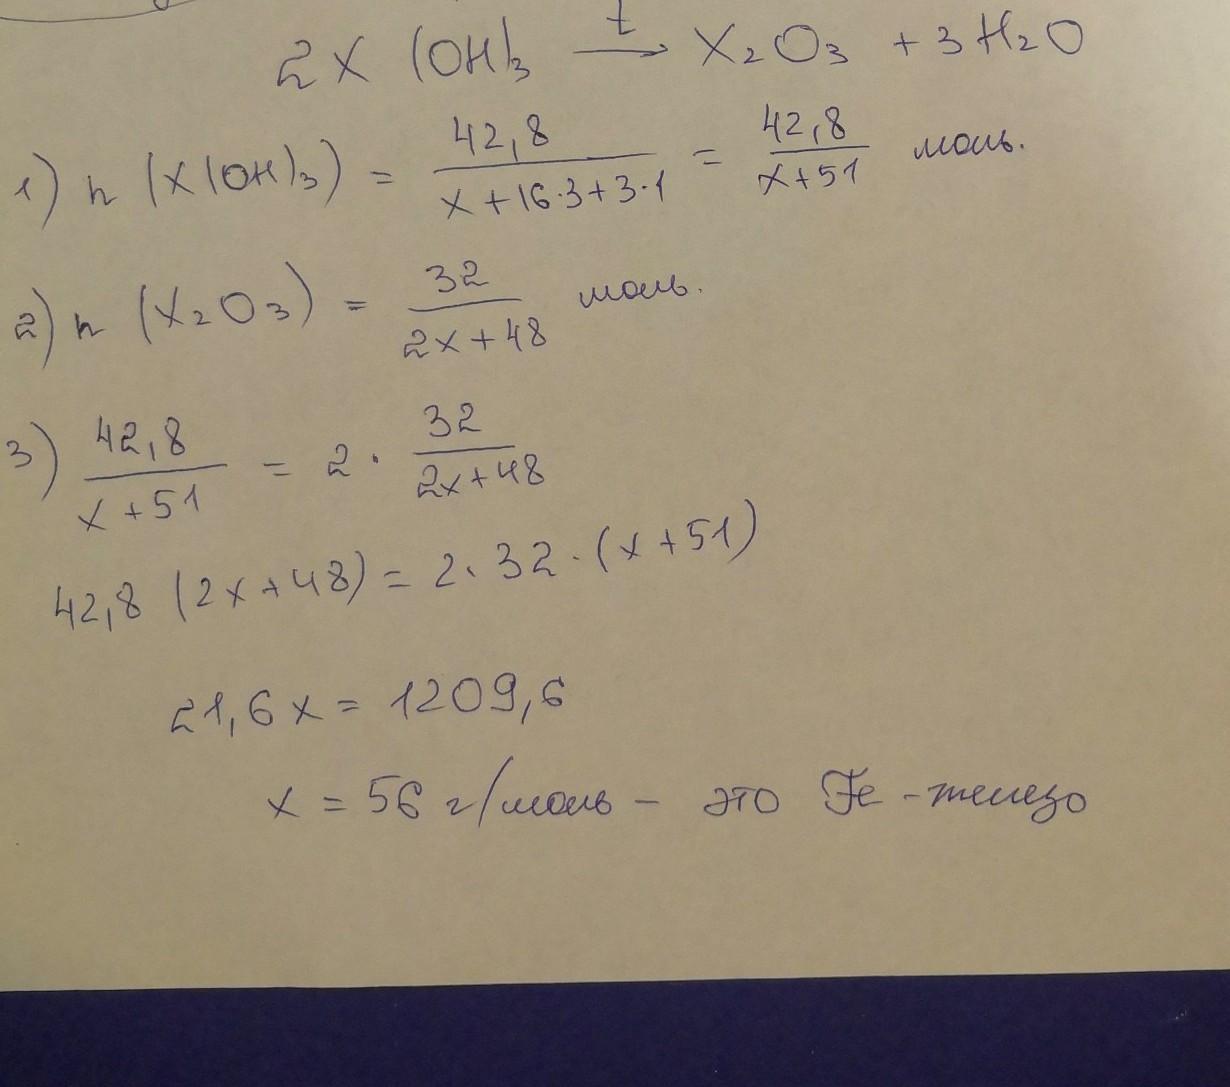 2X (OH)₃ —t→ X₂O₃ + 3H₂O
1) n (X(OH)₃) = 42,8 / (x+16·3+3·1) = 42,8 / (x+51) моль.
2) n (X₂O₃) = 32 / (2x+48) моль.
3) 42,8 / (x+51) = 2 · 32 / (2x+48)
42,8 (2x+48) = 2·32·(x+51)
21,6x = 1209,6
x = 56 г/моль - это Fe - железо